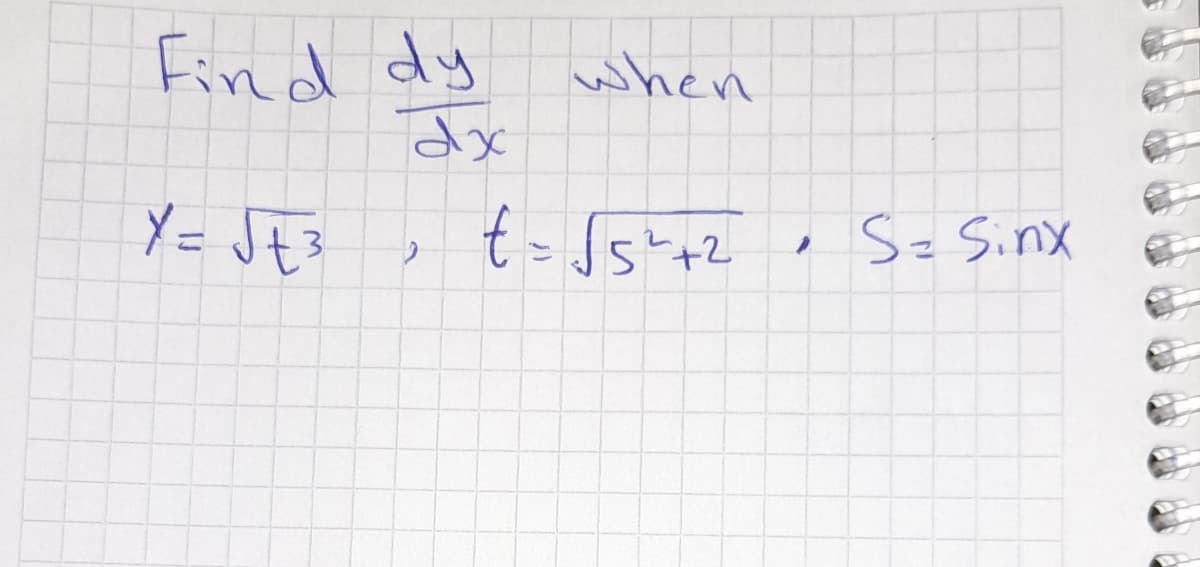 Find dy/dx when
y = √t³ , t = √s²+2 , S = Sinx